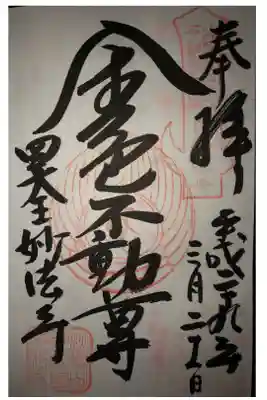 奉拝
平成二十九年
三月二十五日
金色不動尊
妙法寺